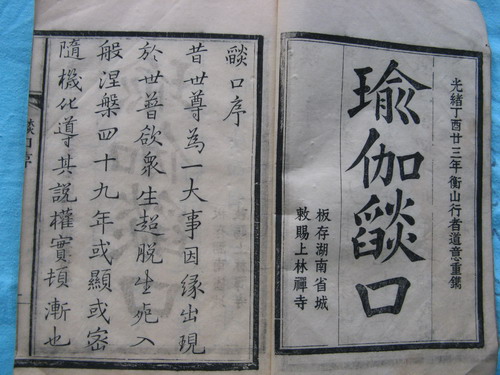 光緒丁酉廿三年衡山行者道意重鐫
瑜伽燄口
板存湖南省城
敕賜上林禪寺
燄口序
昔世尊為一大事因緣出現
於世普欲眾生超脫生死入
般涅槃四十九年或顯或密
隨機化導其說權實頓漸也
燄口序